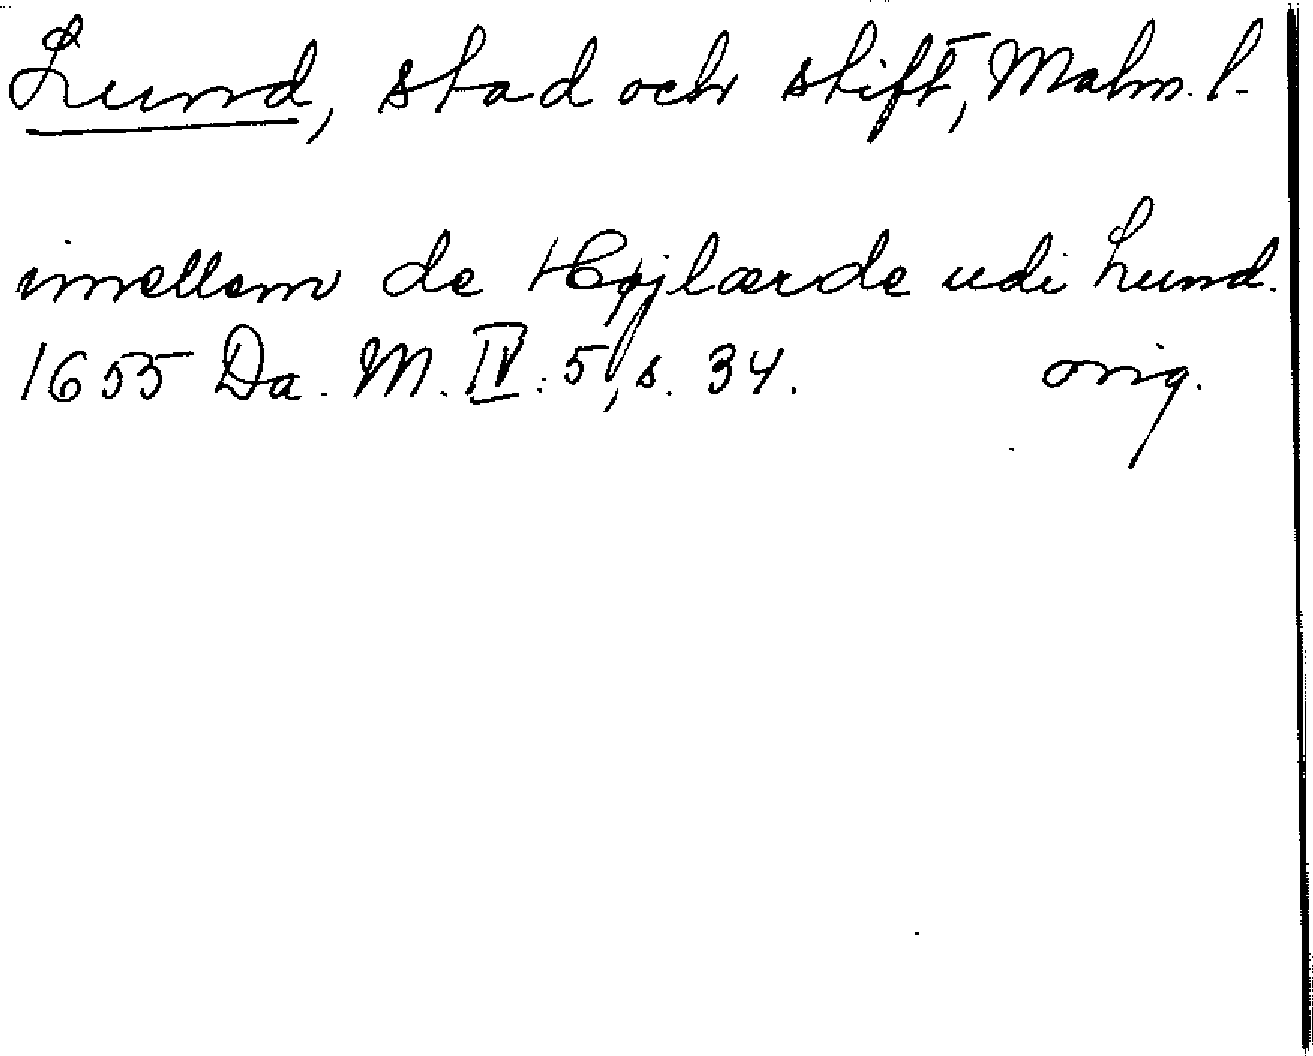 Lund, stad och stift, Malm. l.
imellem de Højlærde udi Lund.
1655 Da. M. IV: 5, s. 34. orig.